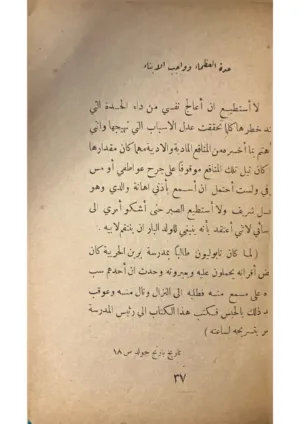 حدة العظماء وواجب الابناء
لا أستطيع ان أعالج نفسي من داء الحدة التي
خطرها كلما تحققت عدل الاسباب التي تهيجها واني
بنا أخسره من المنافع المادية والادبية مهما كان مقدارها
كان نيل تلك المنافع موقوفا على جرح عواطفي أو مس
ولست أحتمل ان أسمع بأذني اهانة والدي وهو
شريف ولا أستطيع الصبر حتى أشكو أمري الى
لاني أعتقد بأنه ينبغي للولد البار ان ينتقم لابيه .
( لما كان نابوليون طالبا بمدرسة برين الحربية كان
أقرانه يحملون عليه ويعيرونه وحدث ان أحدهم سب
على مسمع منه فطلبه الى النزال ونال منه وعوقب
ذلك بالحبس فكتب هذا الكتاب الى رئيس المدرسة
بتسريحه لساعته )
تاريخ بارنج جولد ص ١٨
٣٧